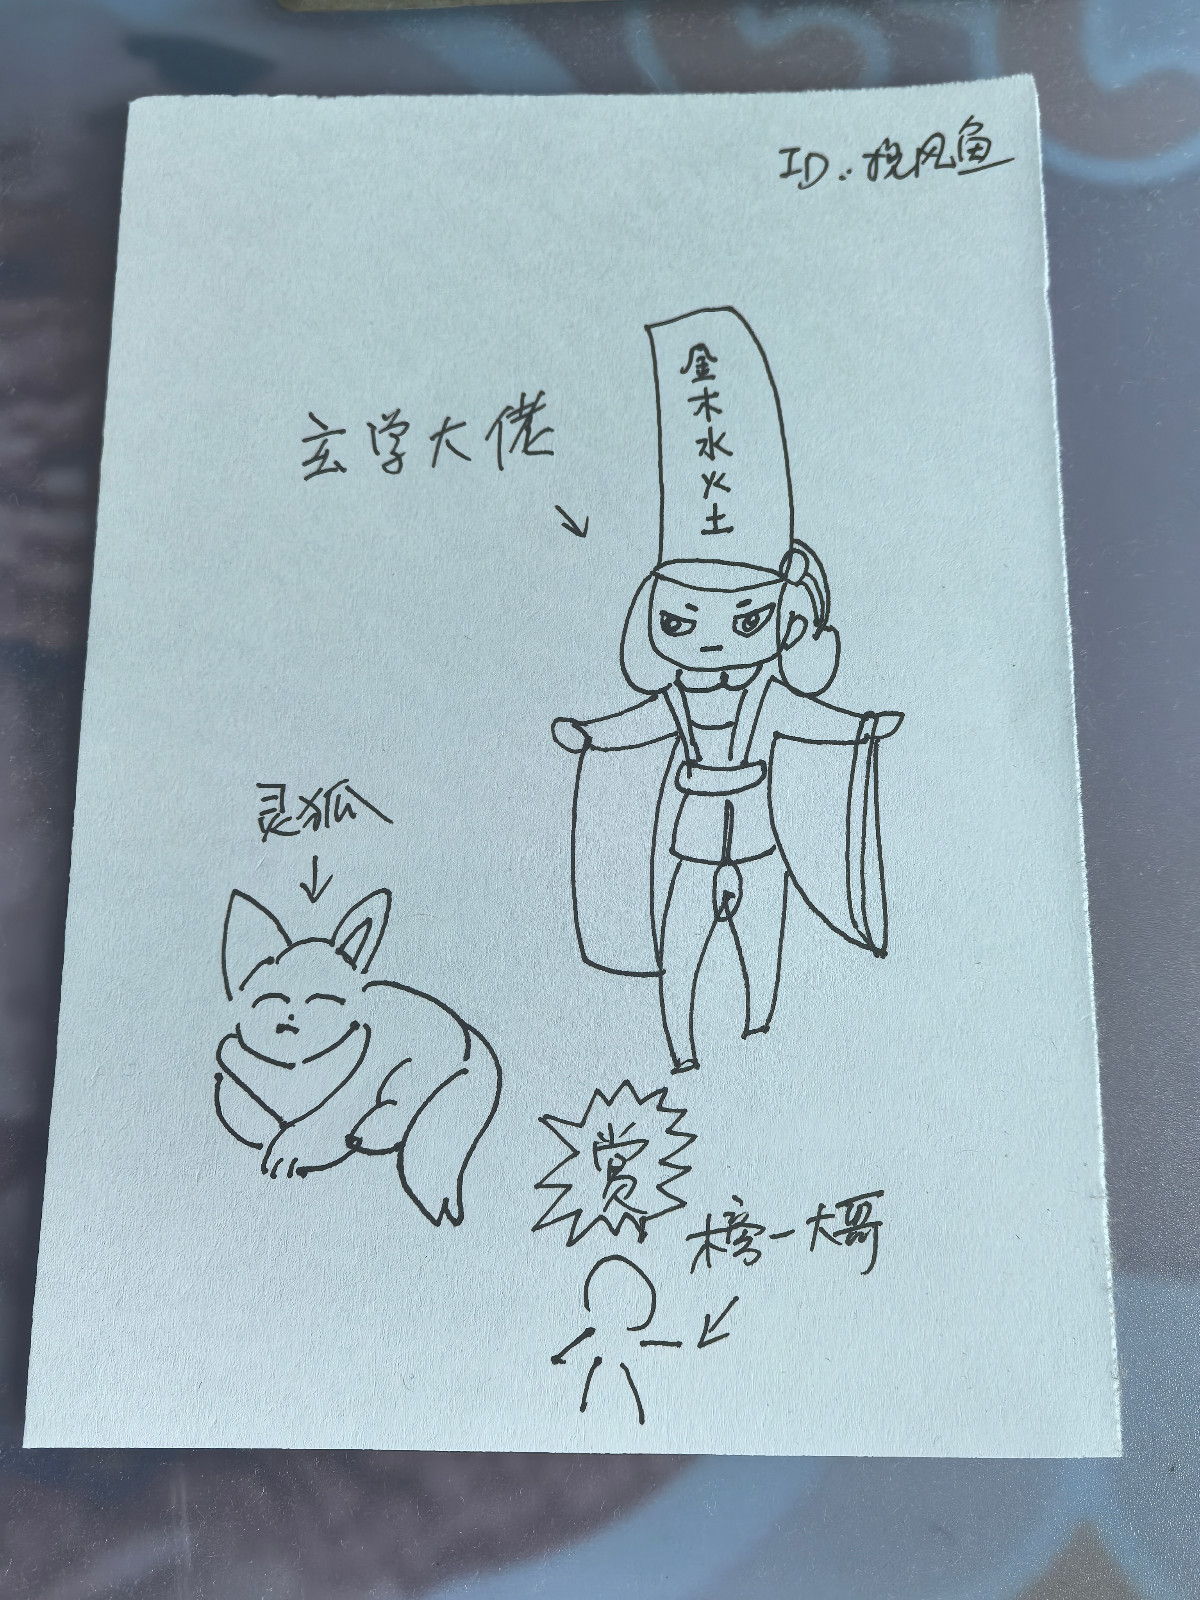 ID:挽风鱼
金木水火土
玄学大佬
灵狐
赏
榜一大哥